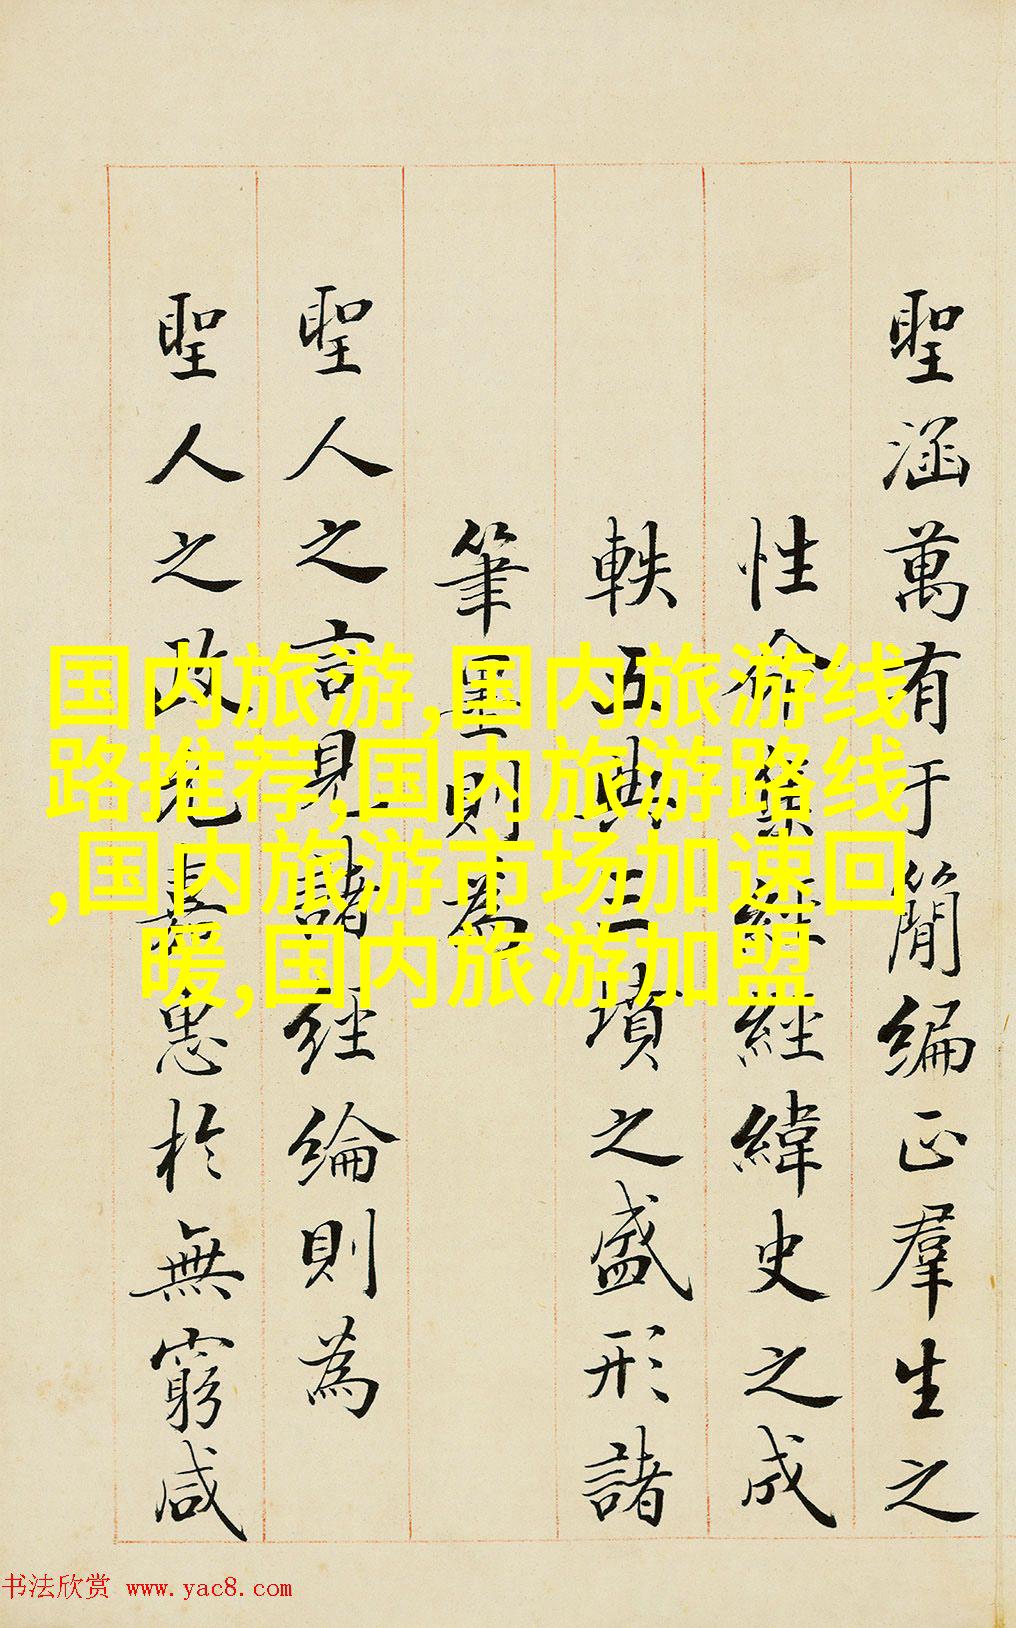 聖涵萬有于簡編正羣生之
性命彙經緯史之成
軼五典三墳之盛形諸
筆墨則為
聖人之言見諸經綸則為
聖人之政惠於無窮咸
国内旅游,国内旅游线
路推荐,国内旅游路线
,国内旅游市场加速回
暖,国内旅游加盟
书法欣赏 www.yac8.com